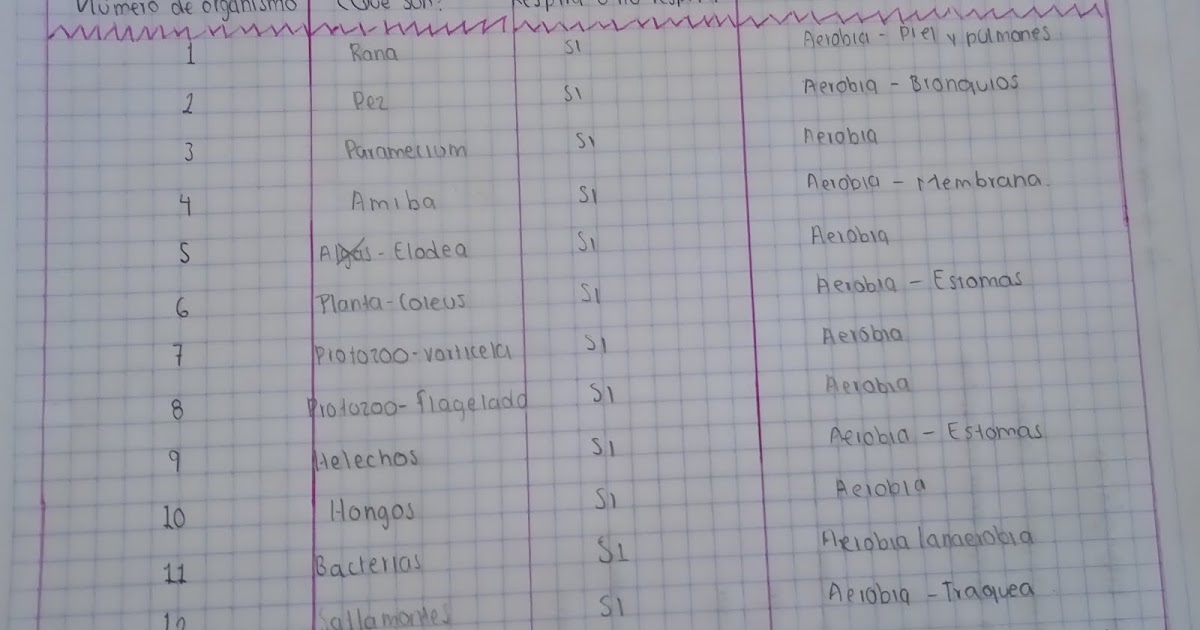 Número de organismo ¿Qué son? Respira o no
1 Rana SI Aerobia - Piel y pulmones
2 Pez SI Aerobia - Bronquios
3 Paramecium SI Aerobia
4 Amiba SI Aerobia - Membrana.
5 Algas - Elodea SI Aerobia
6 Planta - Coleus SI Aerobia - Estomas
7 Protozoo - vorticela SI Aerobia
8 Protozoo - flagelado SI Aerobia
9 Helechos SI Aerobia - Estomas
10 Hongos SI Aerobia
11 Bacterias SI Aerobia /anaerobia
12 SI Aerobia - Traquea